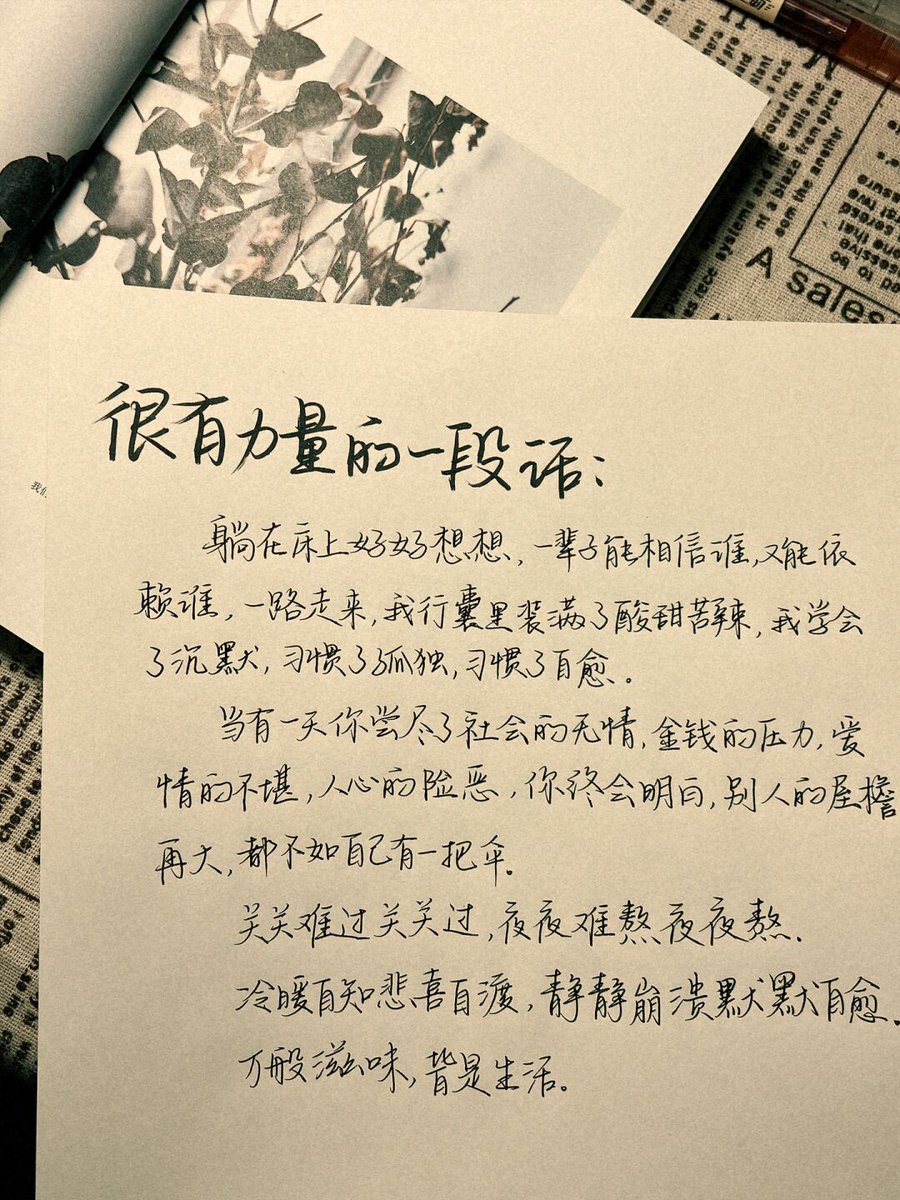 很有力量的一段话：
躺在床上好好想想，一辈子能相信谁，又能依
赖谁，一路走来，我行囊里装满了酸甜苦辣，我学会
了沉默，习惯了孤独，习惯了自愈。
当有一天你尝尽了社会的无情，金钱的压力，爱
情的不堪，人心的险恶，你终会明白，别人的屋檐
再大，都不如自己有一把伞。
关关难过关关过，夜夜难熬夜夜熬.
冷暖自知悲喜自渡，静静崩溃默默自愈.
万般滋味，皆是生活。
A sales